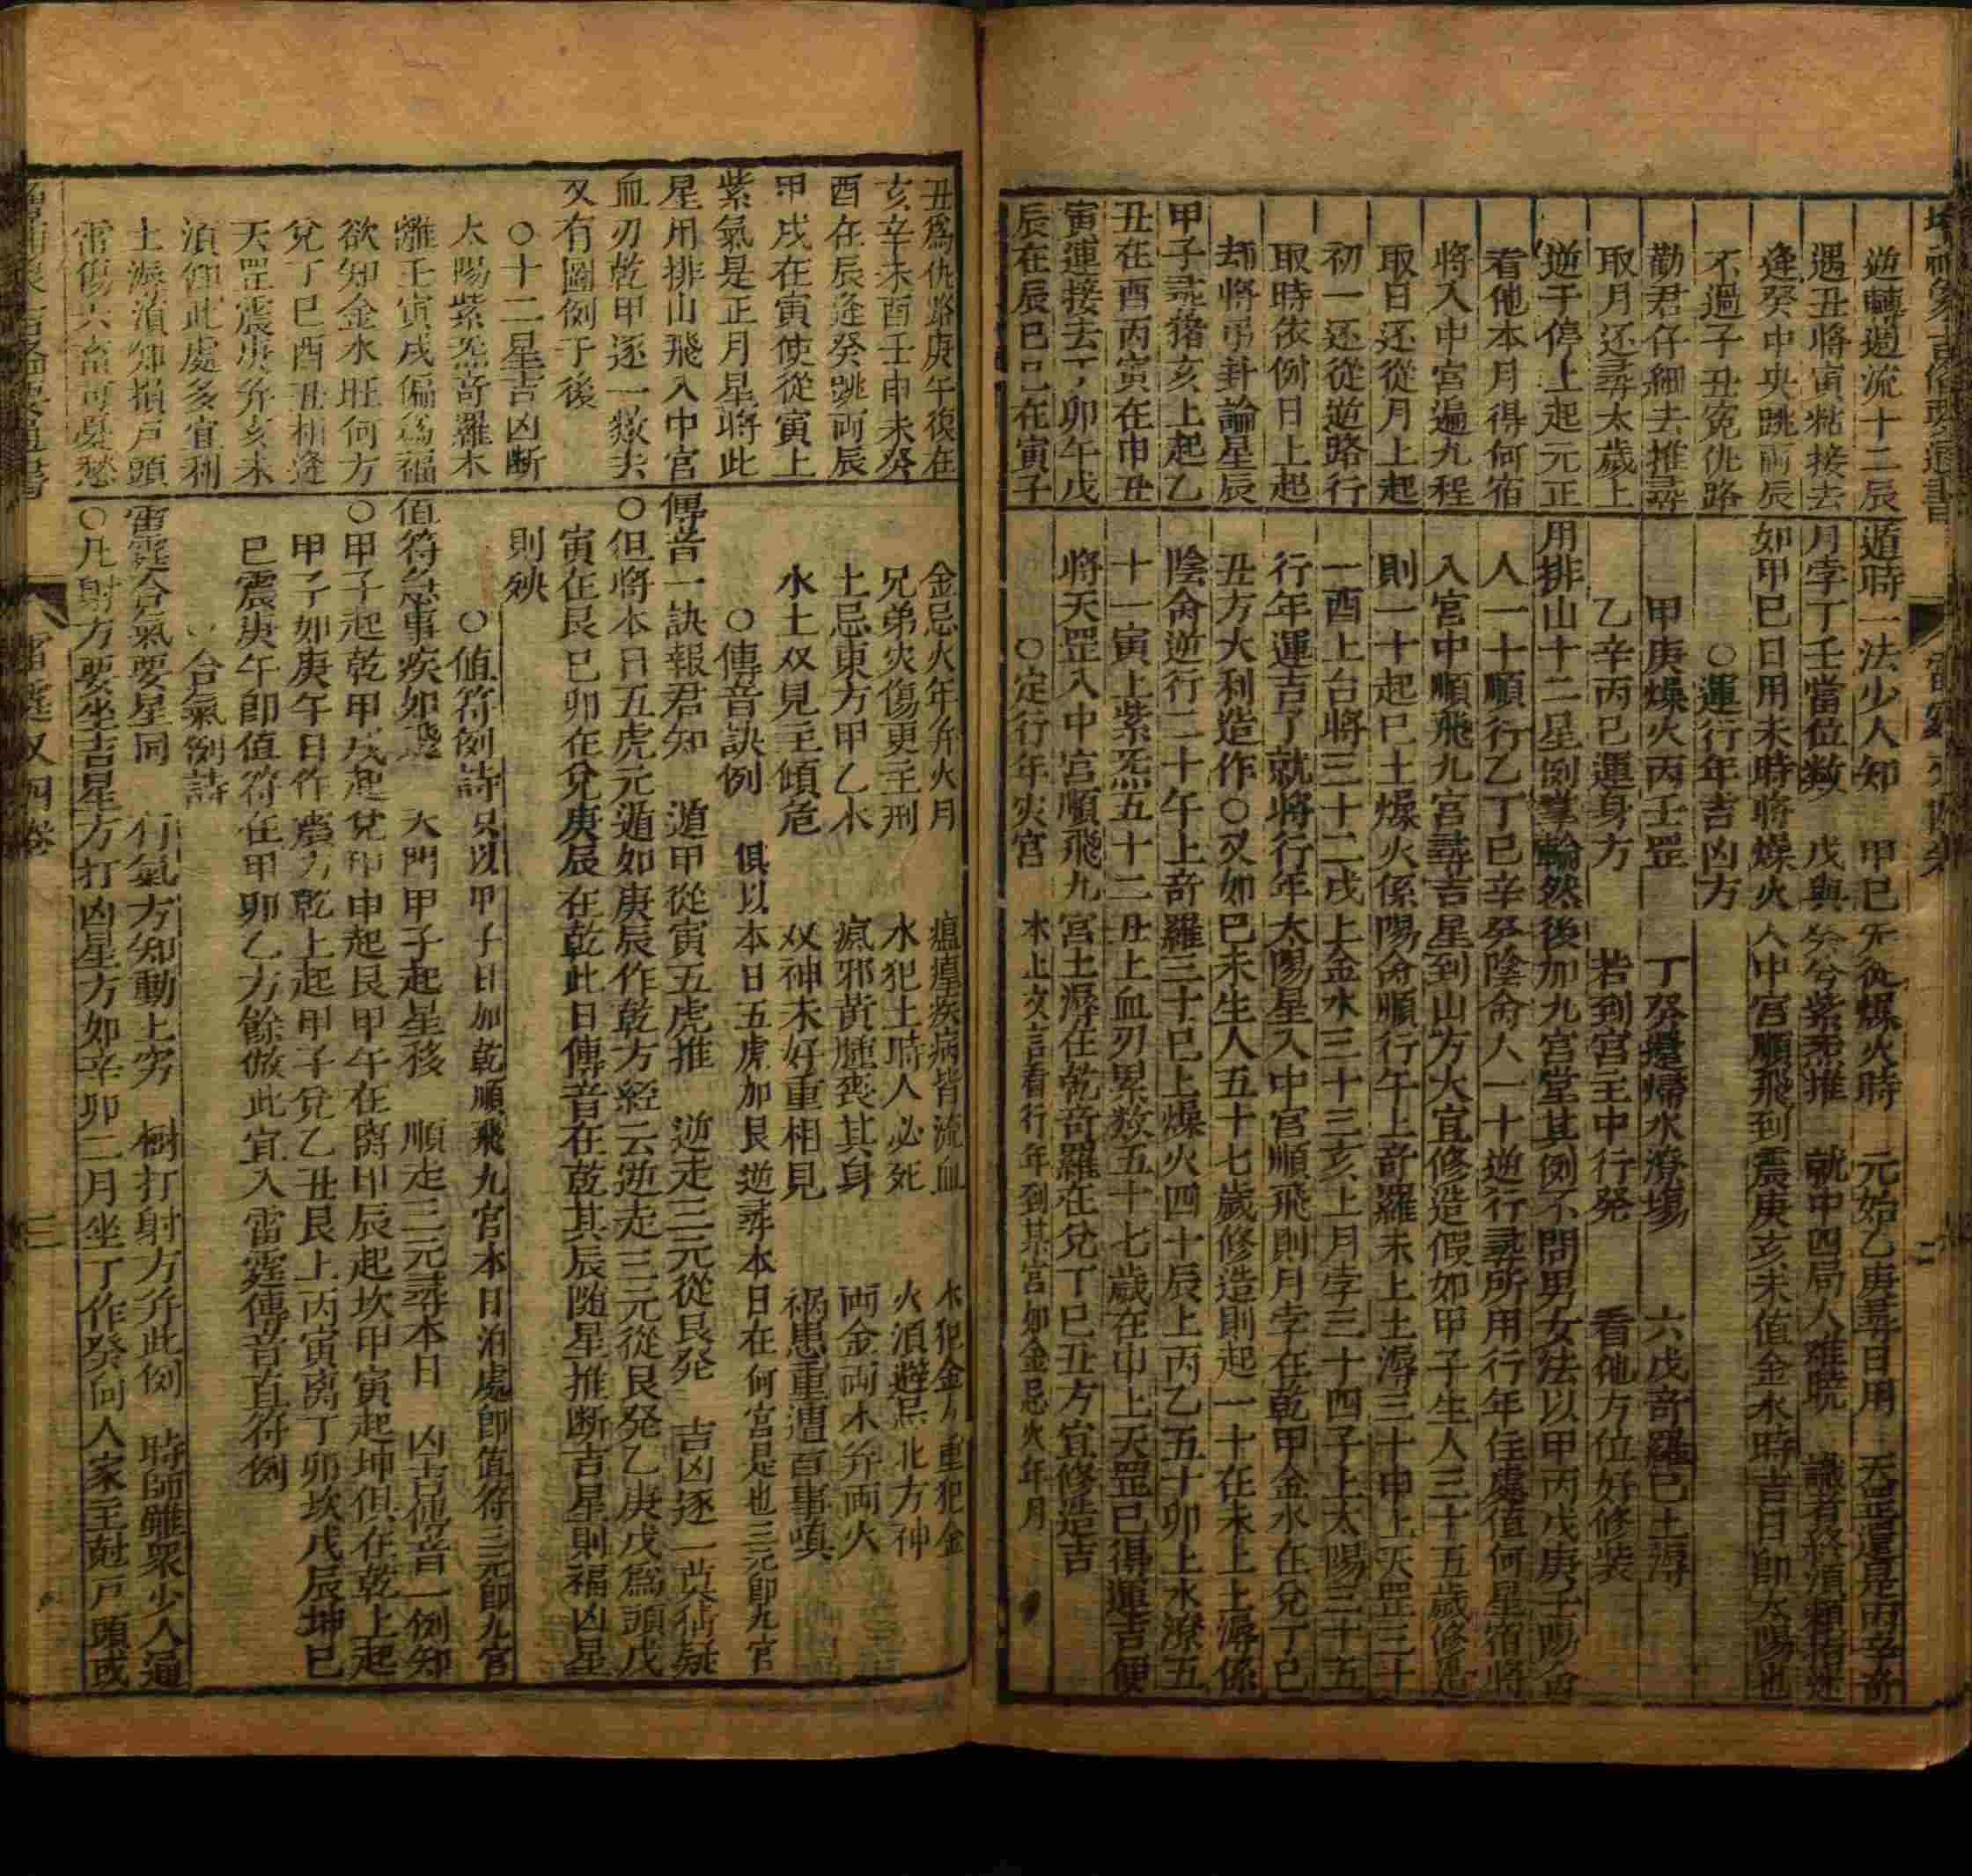 逆轉週流十二辰
遇丑將寅粘接去
逢癸中央跳兩辰
不過子丑冤仇路
勸君仔細去推尋
取月还尋太歲上
逆干停上起元正
看他本月得何宿
將入中宮遍九程
取日还從月上起
初一还從逆路行
取時依例日上起
却將弔卦論星辰
甲子尋猪亥上起乙
丑在酉丙寅在申丑
寅連接去丁卯午戊
辰在辰巳巳在寅子
遁時一法少人知 甲巳 從燥火時 元始乙庚尋日用 天罡還是丙辛奇
月孛丁壬當位数 戊與癸兮紫炁推 就中四局人难晓 識者終須類指迷
如甲巳日用未時將燥火入中宮順飛到震庚亥未值金水時吉日即太陽也
○運行年吉凶方
甲庚燥火丙壬罡 丁癸還歸水潦塲 六戊奇羅巳土溽
乙辛丙巳運身方 若到宮主中行発 看他方位好修装
用排山十二星倒掌輪然後加九宮堂其例不問男女法以甲丙戊庚壬陽命
人一十順行乙丁巳辛癸陰命人一十逆行尋所用行年住處值何星宿將
入宮中順飛九宮尋吉星到山方大宜修造假如甲子生人三十五歲修造
則一十起巳土燥火係陽命順行午上奇羅未上土溽三十申上天罡三十
一酉上台將三十二戌上金水三十三亥上月孛三十四子上太陽三十五
行年運吉了就將行年太陽星入中宮順飛則月孛在乾甲金水在兌丁巳
丑方大利造作○又如巳未生人五十七歲修造則起一十在未上土溽係
陰命逆行二十午上奇羅三十巳上燥火四十辰上丙乙五十卯上水潦五
十一寅上紫炁五十二丑上血刃累数五十七歲在申上天罡已得運吉便
將天罡入中宮順飛九宮土溽在乾奇羅在兌丁巳丑方宜修造吉
○定行年灾宮 末上文言看行年到某宮如金忌火年月
丑爲仇路庚午復在
亥辛未酉壬申未癸
酉在辰逢癸跳両辰
甲戌在寅使從寅上
紫氣是正月星將此
星用排山飛入中宮
血刃乾甲逐一数去
又有圖例于後
○十二星吉凶断
太陽紫炁奇羅木
離壬寅戌偏爲福
欲知金水旺何方
兌丁巳酉丑相逢
天罡震庚并亥未
須知此處多宜利
土溽須知損戸頭
雷傷六畜可憂愁
金忌火年并火月 瘟瘟疾病皆流血 木犯金方重犯金
兄弟灾傷更主刑 水犯土時人必死 火須避忌北方神
土忌東方甲乙木 瘋邪黄腫丧其身 両金両木并両火
水土双見主傾危 双神未好重相見 祸患重遭百事嗔
○傳音訣例 俱以本日五虎加艮逆尋本日在何宮是也三元即九宮
傳音一訣報君知 遁甲從寅五虎推 逆走三元從艮発 吉凶逐一莫狐疑
○但將本日五虎元遁如庚辰作乾方経云逆走三元從艮発乙庚戊爲頭戊
寅在艮巳卯在兌庚辰在乾此日傳音在乾其辰随星推断吉星則福凶星
則殃
○值符例詩 只以甲子日加乾順飛九宮本日泊處即值符三元即九宮
值符急事疾如飛 天門甲子起星移 順走三元尋本日 凶吉他音一例知
○甲子起乾甲戌起兌甲申起艮甲午在离甲辰起坎甲寅起坤俱在乾上起
甲子如庚午日作离方乾上起甲子兌乙丑艮上丙寅离丁卯坎戊辰坤巳
巳震庚午即值符在甲卯乙方餘倣此宜入雷霆傳音直符例
合氣例詩
雷霆合氣要星同 行氣方知動上穷 樹打射方并此例 時師雖衆少人通
○凡射方要坐吉星方打凶星方如辛卯二月坐丁作癸向人家主尅戸頭或
雷霆又四卷
三
二